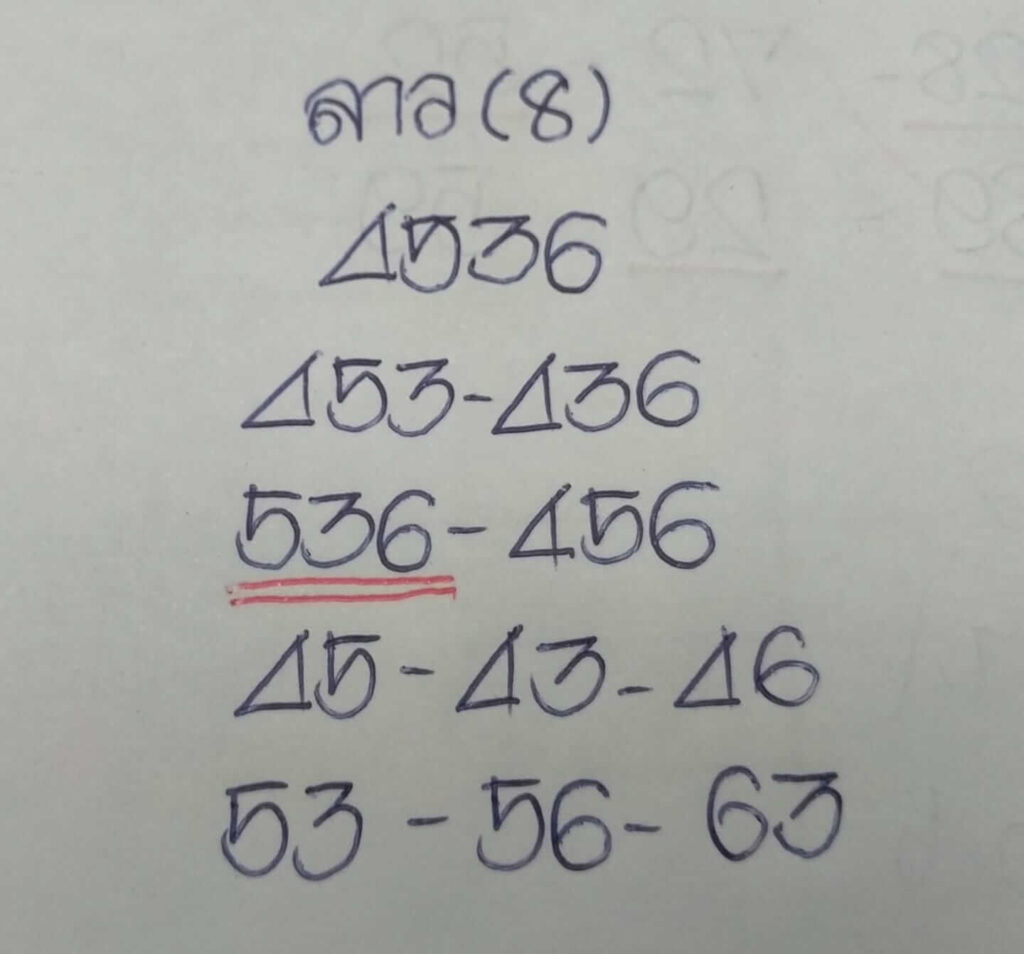 ลาว (8)
4536
453-436
536 - 456
45 - 43 - 46
53 - 56 - 63